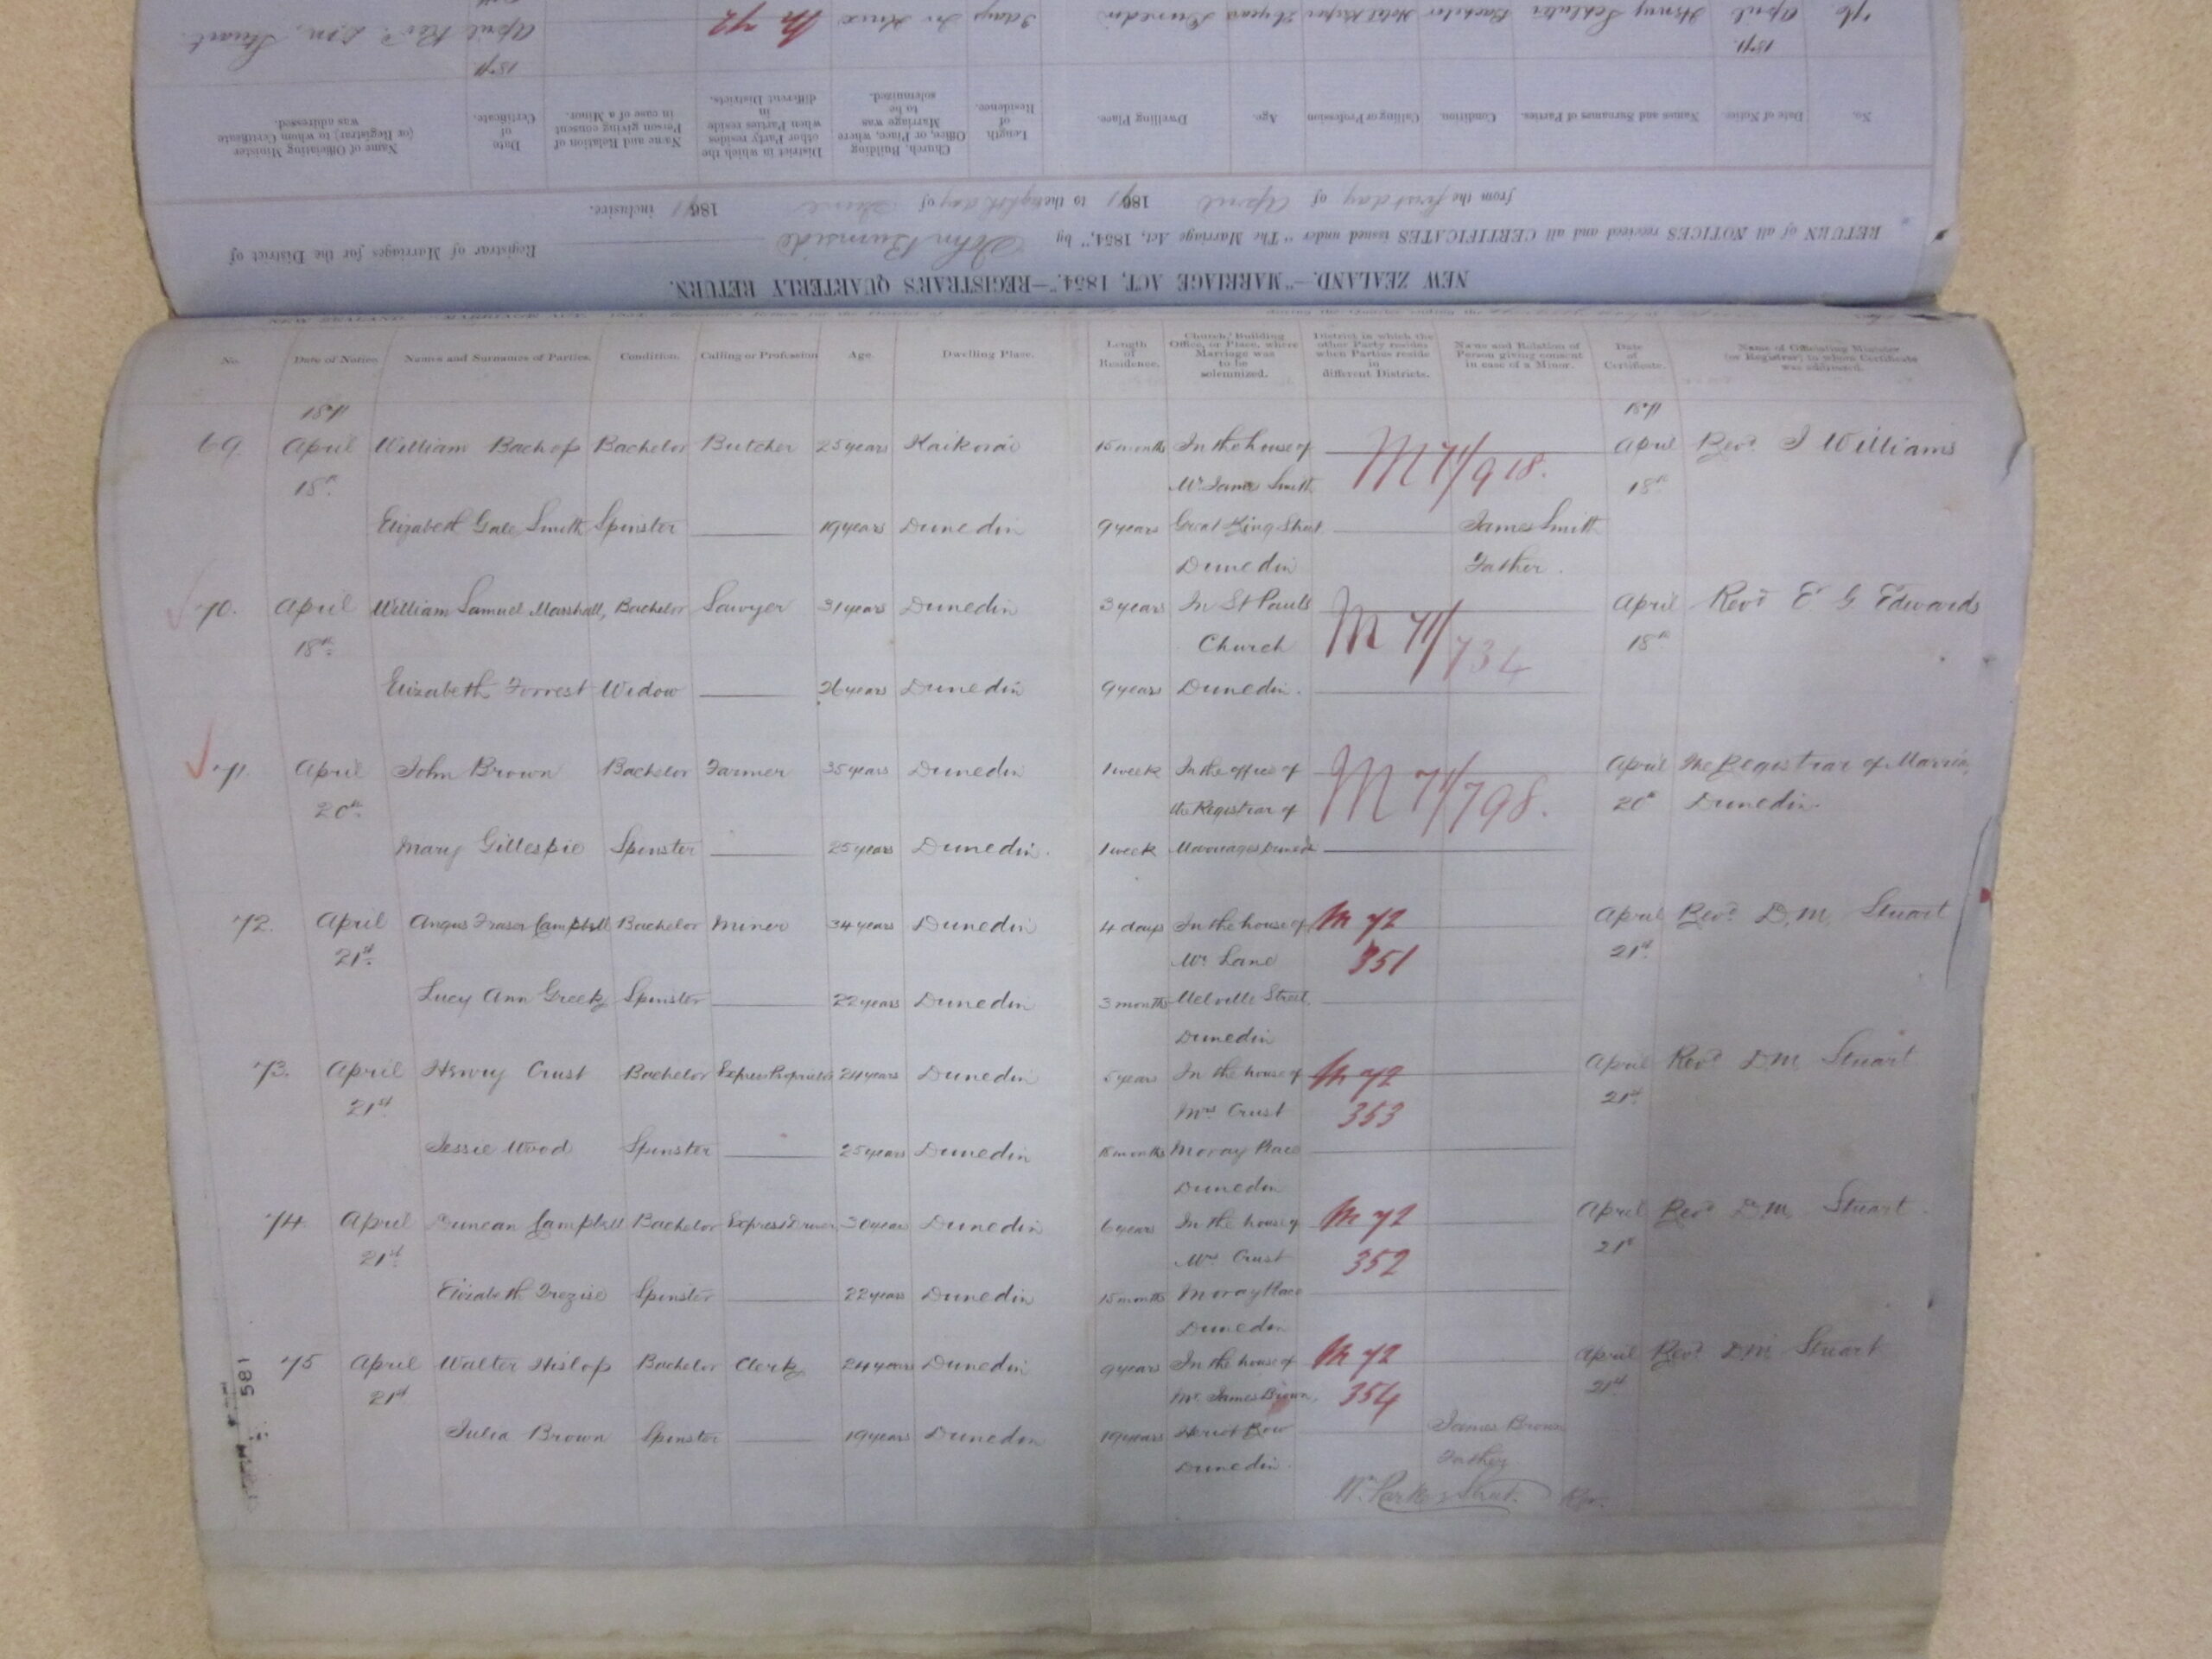 NEW ZEALAND.—"MARRIAGE ACT, 1854."—REGISTRAR'S QUARTERLY RETURN.
RETURN of all NOTICES received and all CERTIFICATES issued under "The Marriage Act, 1854," by John Burnside Registrar of Marriages for the District of
from the first day of April 1871 to the eighth day of June 1871 inclusive.
No. Date of Notice. Names and Surnames of Parties. Condition. Calling or Profession Age. Dwelling Place. Length of Residence. Church, Building Office, or Place, where Marriage was to be solemnized. District in which the other Party resides when Parties reside in different Districts. Name and Relation of Person giving consent in case of a Minor. Date of Certificate. Name of Officiating Minister (or Registrar) to whom Certificate was addressed.
1871 1871
76 April Henry Schluter Bachelor Hotel Keeper years Dunedin 3 days In Knox M 72 April Revd D.M. Stuart
No. Date of Notice Names and Surnames of Parties. Condition. Calling or Profession Age. Dwelling Place. Length of Residence. Church, Building Office, or Place, where Marriage was to be solemnized. District in which the other Party resides when Parties reside in different Districts. Name and Relation of Person giving consent in case of a Minor. Date of Certificate. Name of Officiating Minister (or Registrar) to whom Certificate was addressed.
1871 1871
69. April William Bachop Bachelor Butcher 25 years Kaikorai 15 months In the house of M 71/918. April Revd J Williams
18th Mr James Smith 18th
Elizabeth Gale Smith Spinster 19 years Dunedin 9 years Great King Street James Smith
Dunedin Father.
70. April William Samuel Marshall, Bachelor Sawyer 31 years Dunedin 3 years In St Pauls M 71/734 April Revd E G Edwards
18th Church 18th
Elizabeth Forrest Widow 26 years Dunedin 9 years Dunedin.
71 April John Brown Bachelor Farmer 35 years Dunedin 1 week In the office of M 71/798. April The Registrar of Marria
20th the Registrar of 20th Dunedin.
Mary Gillespie Spinster 25 years Dunedin. 1 week Marriages Dunedin
72. April Angus Fraser Campbell Bachelor Miner 34 years Dunedin 4 days In the house of M 72 April Revd D.M. Stuart
21st Mr Lane 351 21st
Lucy Ann Greek Spinster 22 years Dunedin 3 months Melville Street
Dunedin
73. April Henry Crust Bachelor Express Proprietor 24 years Dunedin 5 years In the house of M 72 April Revd D M Stuart
21st Mrs Crust 353 21st
Jessie Wood Spinster 25 years Dunedin 18 months Moray Place
Dunedin
74 April Duncan Campbell Bachelor Express Driver 30 years Dunedin 6 years In the house of M 72 April Revd D M Stuart.
21st Mrs Crust 352 21st
Elizabeth Trezise Spinster 22 years Dunedin 15 months Moray Place
Dunedin
75 April Walter Hislop Bachelor Clerk 24 years Dunedin 9 years In the house of M 72 April Revd D M Stuart
21st Mr James Brown, 354 21st
Julia Brown Spinster 19 years Dunedin 19 years Heriot Row James Brown
Dunedin. Father
581